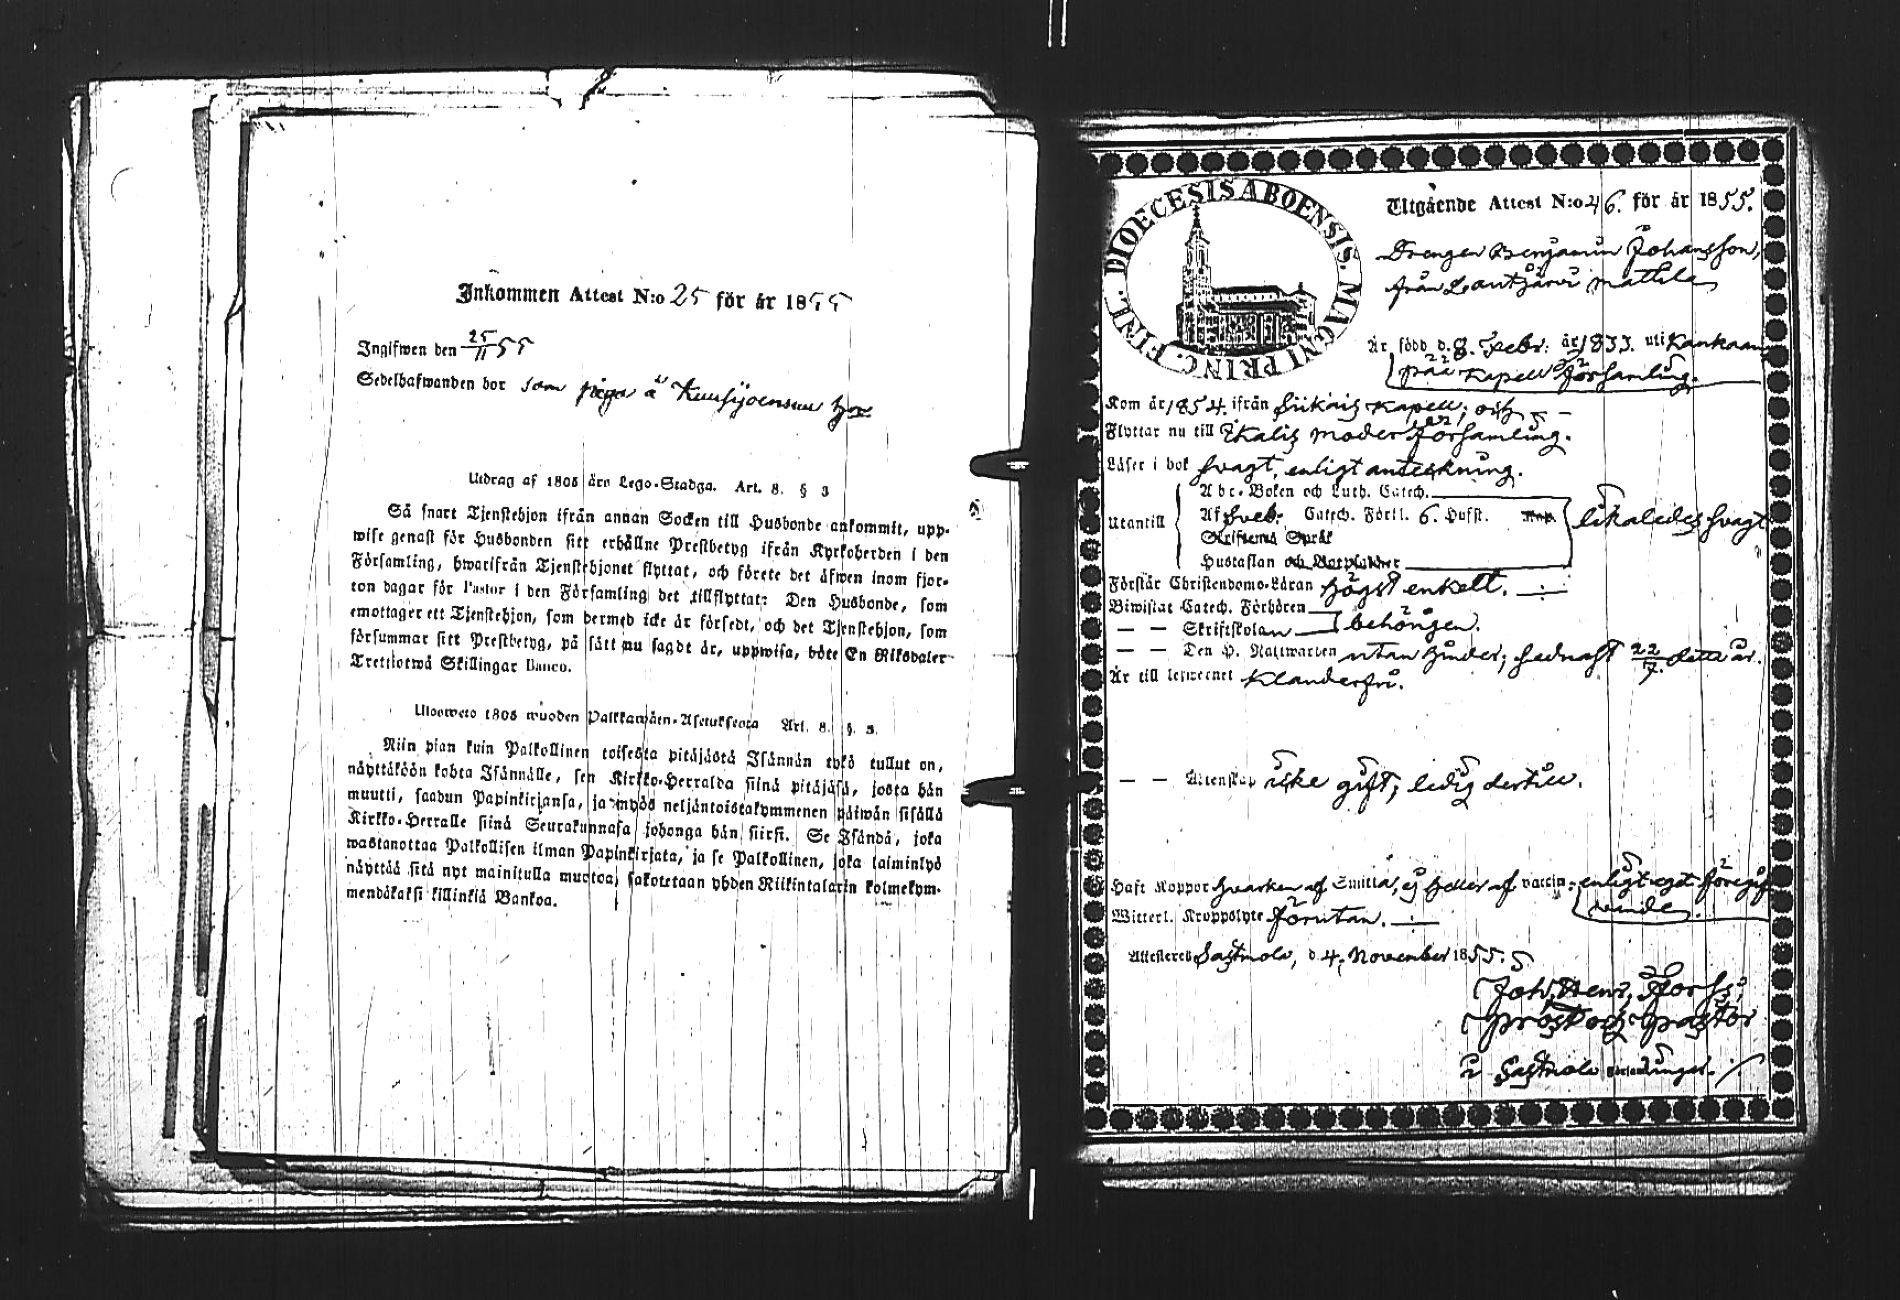 Inkommen Attest N:o 25 för år 1855
Ingifwen den 25/11 55
Sedelhafwanden bor som piga å
Utdrag af 1805 års Lego-Stadga. Art. 8. § 3
Så snart Tjenstehjon ifrån annan Socken till Husbonde ankommit, upp-
wise genast för Husbonden sitt erhållne Prestbetyg ifrån Kyrkoherden i den
Församling, hwarifrån Tjenstehjonet flyttat, och förete det äfwen inom fjor-
ton dagar för Pastor i den Församling det tillflyttat: Den Husbonde, som
emottager ett Tjenstehjon, som dermed icke är försedt, och det Tjenstehjon, som
försummar sitt Prestbetyg, på sätt nu sagdt är, uppwisa, böte En Riksdaler
Trettiotwå Skillingar Banco.
Ulosweto 1805 wuoden Palkkawäen-Asetuksesta Art. 8. §. 3.
Niin pian kuin Palkollinen toisesta pitäjästä Isännän tykö tullut on,
näyttäköön kohta Isännälle, sen Kirkko-Herralda siinä pitäjäsä, josta hän
muutti, saadun Papinkirjansa, ja myös neljäntoistakymmenen päiwän sisällä
Kirkko-Herralle siinä Seurakunnasa johonga hän siirsi. Se Isändä, joka
wastanottaa Palkollisen ilman Papinkirjata, ja se Palkollinen, joka laiminlyö
näyttää sitä nyt mainitulla muotoa, sakotetaan yhden Riikintalarin kolmekym-
mendäkaksi killinkiä Bankoa.
DIOECESIS ABOENSIS. MAGNI PRINC. FINL.
Utgående Attest N:o 46. för år 1855.
Drengen Benjamin Johansson,
från Lantjärvi Mattila
Är född d. 8. Febr: år 1833. uti Kankaan
pää Kapell församling.
Kom år 1854. ifrån Siikais Kapell; och
Flyttar nu till Ikalis moder församling.
Läser i bok svagt, enligt anteckning.
Abc-Boken och Luth. Catech.
Utantill Af Sveb. Catech. Förkl. 6. Hufst. likaledes svagt
Skriftenes Språk
Hustaflan och Botpsalmer
Förstår Christendoms-Läran högst enkelt.
Biwistat Catech. Förhören
— — Skriftskolan behörigen.
— — Den H. Nattwarden utan hinder; sednast 22/7. detta år.
Är till lefwernet klanderfri.
— — Äktenskap icke gift; ledig dertill.
Haft Koppor hvarken af Smitta, ej heller af vaccin; enligt eget föregif
vande.
Witterl. Kroppslyte förutan.
Attesteras Sastmola, d. 4. November 1855.
Joh. Henr. Forss;
Prost och Pastor
i Sastmola Församlingar.